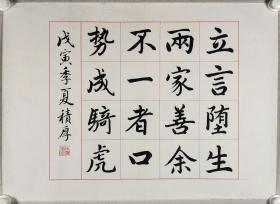 立言堕生
兩家善余
不一者口
势成騎虎
戊寅季夏積厚